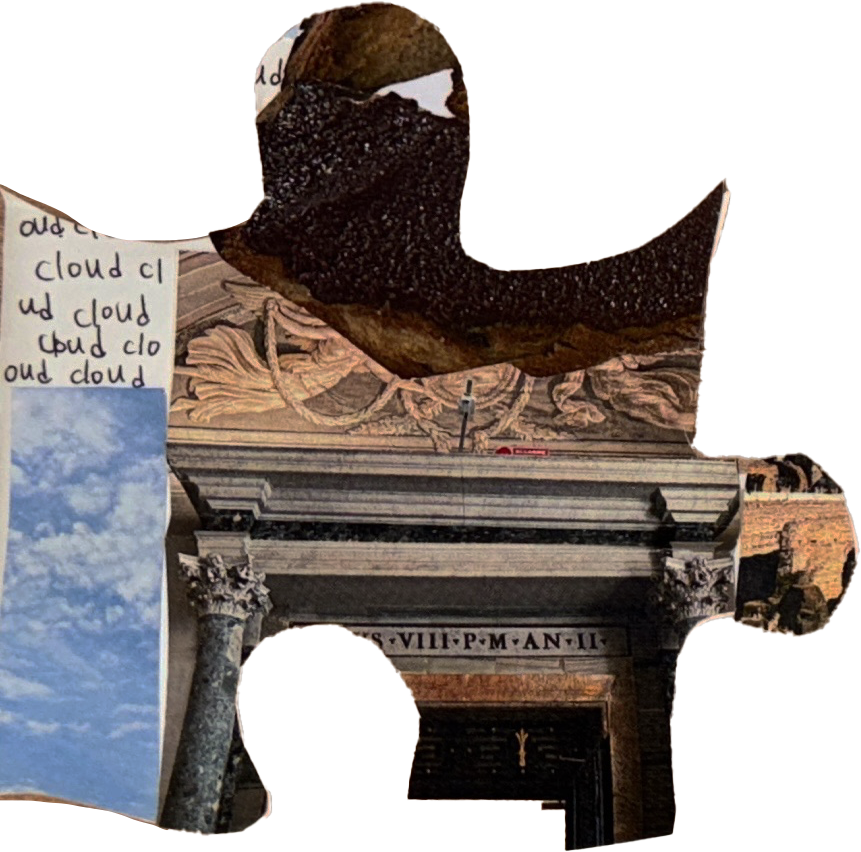 ud
oud cl
cloud cl
ud cloud
cloud clo
oud cloud
S·VIII·P·M·AN·II·